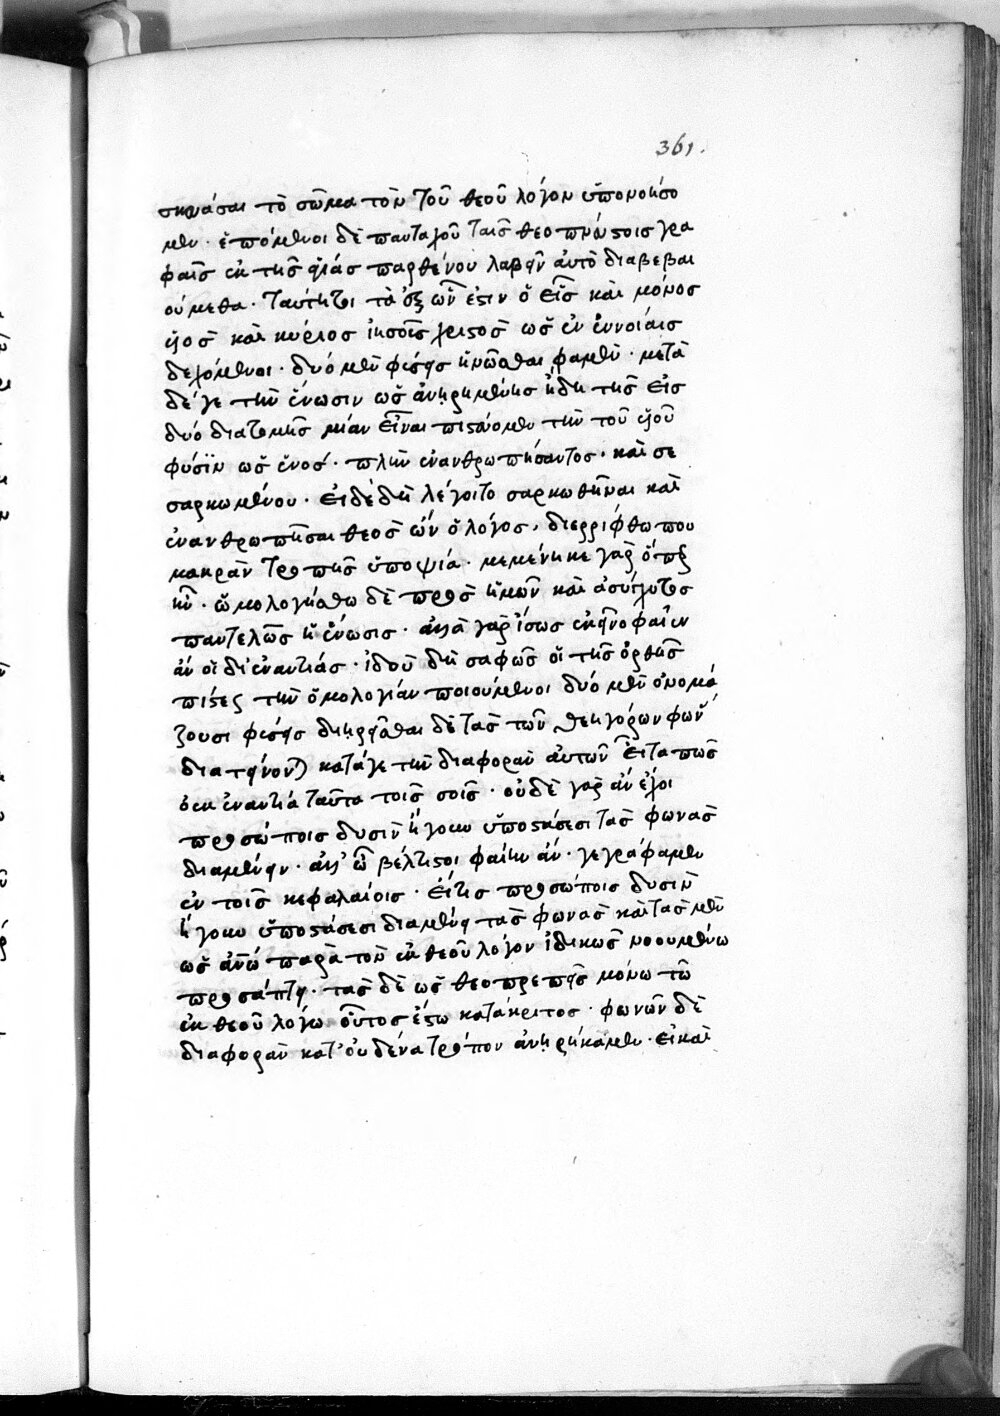 361.
σκευάσαι τὸ σῶμα τὸν τοῦ θεοῦ λόγον ὑπονοήσο
μεν. ἑπόμενοι δὲ πανταχοῦ ταῖς θεοπνεύστοις γρα
φαῖς ἐκ τῆς ἁγίας παρθένου λαβεῖν αὐτὸ διαβεβαι
ούμεθα. ταύτητοι τὰ ἐξ ὧν ἐστιν ὁ εἷς καὶ μόνος
υἱὸς καὶ κύριος ἰησοῦς χριστὸς ὡς ἐν ἐννοίαις
δεχόμενοι. δύο μὲν φύσεις ἡνῶσθαι φαμὲν. μετὰ
δέ γε τὴν ἕνωσιν ὡς ἀνῃρημένης ἤδη τῆς εἰς
δύο διατομῆς μίαν εἶναι πιστεύομεν τὴν τοῦ υἱοῦ
φύσιν ὡς ἑνός. πλὴν ἐνανθρωπήσαντος. καὶ σε
σαρκωμένου. εἰ δὲ δὴ λέγοιτο σαρκωθῆναι καὶ
ἐνανθρωπῆσαι θεὸς ὢν ὁ λόγος, διερρίφθω που
μακρὰν τροπῆς ὑποψία. μεμένηκε γὰρ ὅπερ
ἦν. ὡμολογήσθω δὲ πρὸς ἡμῶν καὶ ἀσύγχυτος
παντελῶς ἡ ἕνωσις. ἀλλὰ γὰρ ἴσως ἐκεῖνο φαῖεν
ἂν οἱ δι' ἐναντίας. ἰδοὺ δὴ σαφῶς οἱ τῆς ὀρθῆς
πίστεως τὴν ὁμολογίαν ποιούμενοι δύο μὲν ὀνομά
ζουσι φύσεις διῃρῆσθαι δὲ τὰς τῶν θεηγόρων φωνὰς
διατείνονται κατά γε τὴν διαφορὰν αὐτῶν εἶτα πῶς
οὐκ ἐναντία ταῦτα τοῖς σοῖς. οὐδὲ γὰρ ἂν ἔχοι
προσώποις δυσὶν ἤγουν ὑποστάσεσι τὰς φωνὰς
διανέμειν. ἀλλ' ὦ βέλτιστοι φαίην ἄν. γεγράφαμεν
ἐν τοῖς κεφαλαίοις. εἴ τις προσώποις δυσὶν
ἤγουν ὑποστάσεσι διανέμει τὰς φωνὰς καὶ τὰς μὲν
ὡς ἀνθρώπῳ παρὰ τὸν ἐκ θεοῦ λόγον ἰδικῶς νοουμένῳ
προσάπτει. τὰς δὲ ὡς θεοπρεπεῖς μόνῳ τῷ
ἐκ θεοῦ λόγῳ οὗτος ἔστω κατάκριτος. φωνῶν δὲ
διαφορὰν κατ' οὐδένα τρόπον ἀνῃρήκαμεν. εἰ καὶ